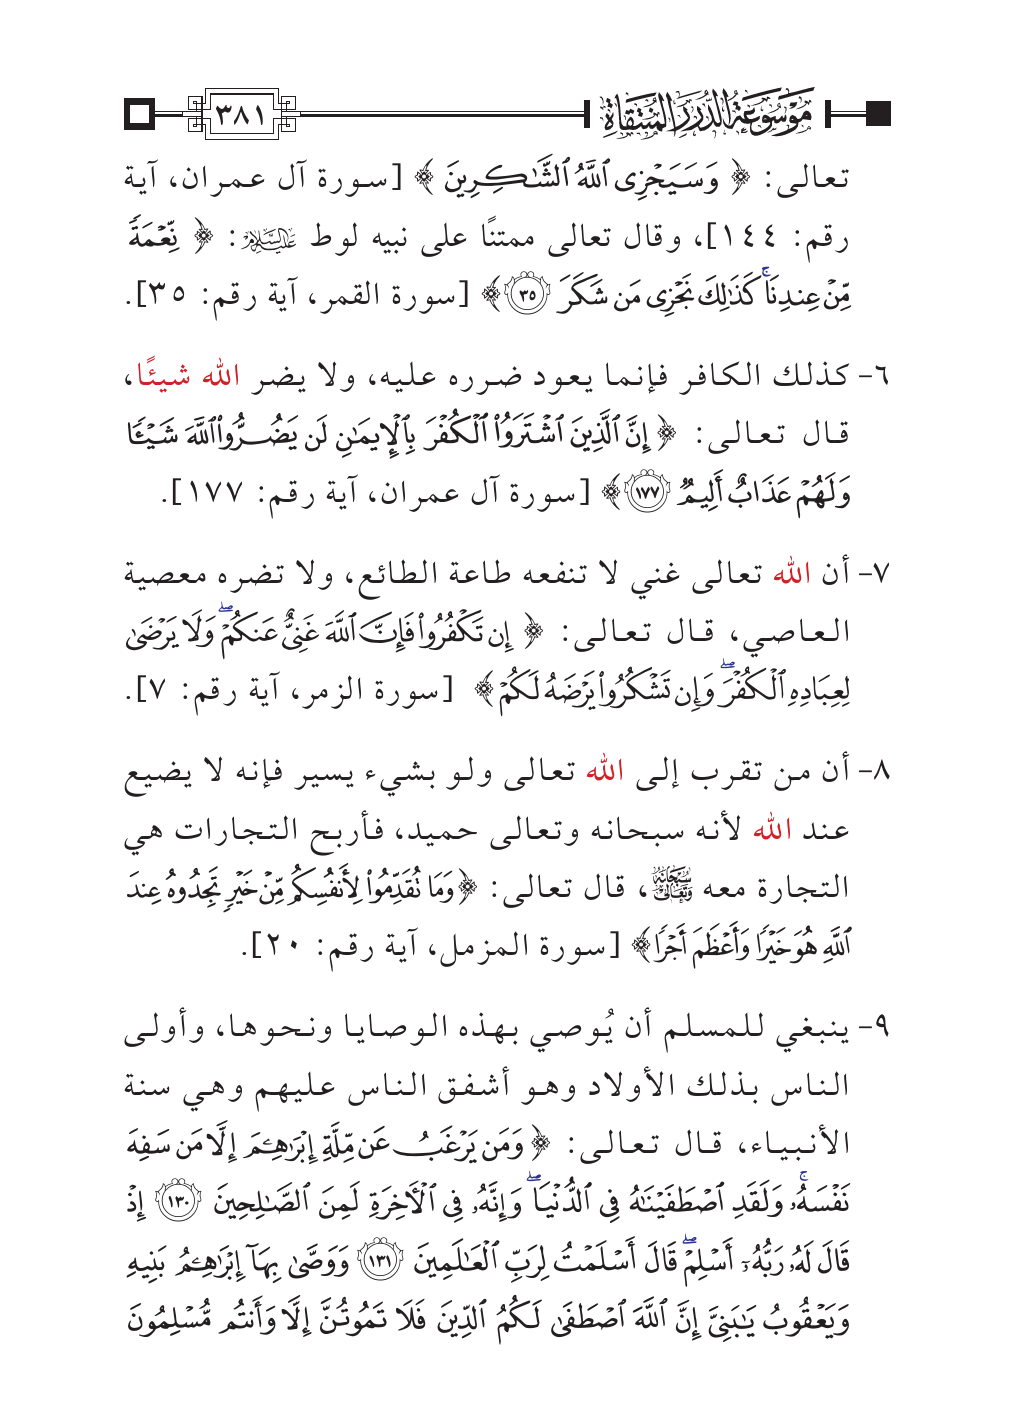 موسوعة الدرر المنتقاة ٣٨١
تعالى: ﴿ وَسَيَجْزِى ٱللَّهُ ٱلشَّٰكِرِينَ ﴾ [سورة آل عمران، آية
رقم: ١٤٤]، وقال تعالى ممتنًا على نبيه لوط عليه السلام: ﴿ نِّعْمَةً
مِّنْ عِندِنَا ۚ كَذَٰلِكَ نَجْزِى مَن شَكَرَ ٣٥ ﴾ [سورة القمر، آية رقم: ٣٥].
٦- كذلك الكافر فإنما يعود ضرره عليه، ولا يضر الله شيئًا،
قال تعالى: ﴿ إِنَّ ٱلَّذِينَ ٱشْتَرَوُا۟ ٱلْكُفْرَ بِٱلْإِيمَٰنِ لَن يَضُرُّوا۟ ٱللَّهَ شَيْـًٔا
وَلَهُمْ عَذَابٌ أَلِيمٌ ١٧٧ ﴾ [سورة آل عمران، آية رقم: ١٧٧].
٧- أن الله تعالى غني لا تنفعه طاعة الطائع، ولا تضره معصية
العاصي، قال تعالى: ﴿ إِن تَكْفُرُوا۟ فَإِنَّ ٱللَّهَ غَنِىٌّ عَنكُمْ ۖ وَلَا يَرْضَىٰ
لِعِبَادِهِ ٱلْكُفْرَ ۖ وَإِن تَشْكُرُوا۟ يَرْضَهُ لَكُمْ ﴾ [سورة الزمر، آية رقم: ٧].
٨- أن من تقرب إلى الله تعالى ولو بشيء يسير فإنه لا يضيع
عند الله لأنه سبحانه وتعالى حميد، فأربح التجارات هي
التجارة معه سبحانه وتعالى، قال تعالى: ﴿وَمَا تُقَدِّمُوا۟ لِأَنفُسِكُم مِّنْ خَيْرٍ تَجِدُوهُ عِندَ
ٱللَّهِ هُوَ خَيْرًا وَأَعْظَمَ أَجْرًا﴾ [سورة المزمل، آية رقم: ٢٠].
٩- ينبغي للمسلم أن يُوصي بهذه الوصايا ونحوها، وأولى
الناس بذلك الأولاد وهو أشفق الناس عليهم وهي سنة
الأنبياء، قال تعالى: ﴿ وَمَن يَرْغَبُ عَن مِّلَّةِ إِبْرَٰهِـۧمَ إِلَّا مَن سَفِهَ
نَفْسَهُۥ ۚ وَلَقَدِ ٱصْطَفَيْنَٰهُ فِى ٱلدُّنْيَا ۖ وَإِنَّهُۥ فِى ٱلْـَٔاخِرَةِ لَمِنَ ٱلصَّٰلِحِينَ ١٣٠ إِذْ
قَالَ لَهُۥ رَبُّهُۥٓ أَسْلِمْ ۖ قَالَ أَسْلَمْتُ لِرَبِّ ٱلْعَٰلَمِينَ ١٣١ وَوَصَّىٰ بِهَآ إِبْرَٰهِـۧمُ بَنِيهِ
وَيَعْقُوبُ يَٰبَنِىَّ إِنَّ ٱللَّهَ ٱصْطَفَىٰ لَكُمُ ٱلدِّينَ فَلَا تَمُوتُنَّ إِلَّا وَأَنتُم مُّسْلِمُونَ